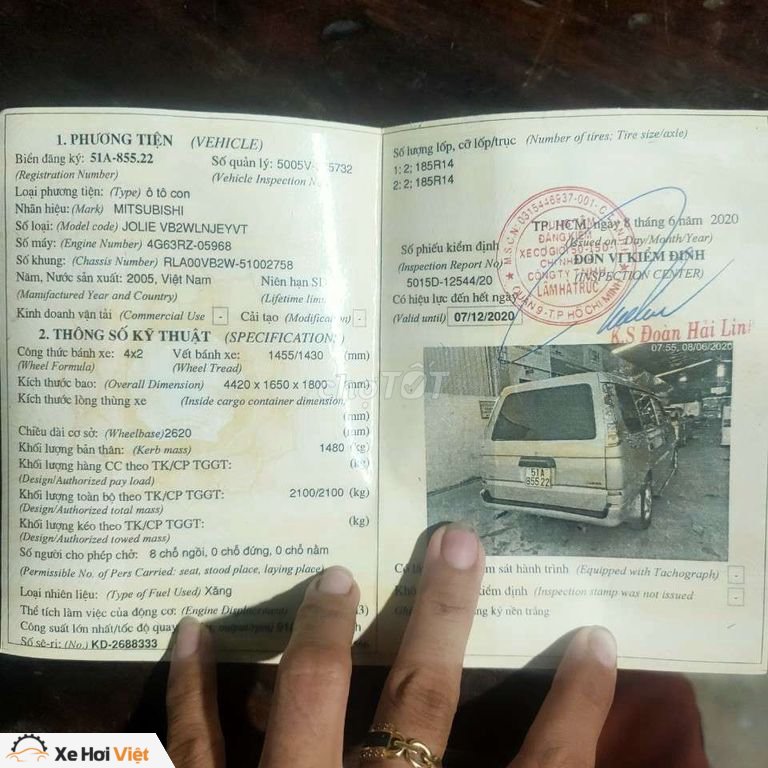 1. PHƯƠNG TIỆN (VEHICLE)
Biển đăng ký: 51A-855.22 Số quản lý: 5005V-
5732
(Registration Number) (Vehicle Inspection
Loại phương tiện: (Type) ô tô con
Nhãn hiệu: (Mark) MITSUBISHI
Số loại: (Model code) JOLIE VB2WLNJEYVT
Số máy: (Engine Number) 4G63RZ-05968
Số khung: (Chassis Number) RLA00VB2W-51002758
Năm, Nước sản xuất: 2005, Việt Nam Niên hạn
(Manufactured Year and Country) (Lifetime
Kinh doanh vận tải (Commercial Use - Cải tạo (Modification) -
2. THÔNG SỐ KỸ THUẬT (SPECIFICATION)
Công thức bánh xe: 4x2 Vết bánh xe: 1455/1430 (mm)
(Wheel Formula) (Wheel Tread)
Kích thước bao: (Overall Dimension) 4420 x 1650 x 1800 (mm)
Kích thước lòng thùng xe (Inside cargo container dimension)
(mm)
Chiều dài cơ sở: (Wheelbase) 2620 (mm)
Khối lượng bản thân: (Kerb mass) 1480 (kg)
Khối lượng hàng CC theo TK/CP TGGT: (kg)
(Design/Authorized pay load)
Khối lượng toàn bộ theo TK/CP TGGT: 2100/2100 (kg)
(Design/Authorized total mass)
Khối lượng kéo theo TK/CP TGGT: (kg)
(Design/Authorized towed mass)
Số người cho phép chở: 8 chỗ ngồi, 0 chỗ đứng, 0 chỗ nằm
(Permissible No. of Pers Carried: seat, stood place, laying place)
Loại nhiên liệu: (Type of Fuel Used) Xăng
Thể tích làm việc của động cơ: (Engine Displacement
Công suất lớn nhất/tốc độ quay
Số sê-ri: (No.) KD-2688333
Số lượng lốp, cỡ lốp/trục (Number of tires; Tire size/axle)
1: 2; 185R14
2: 2; 185R14
TP. HCM, ngày 8 tháng 6 năm 2020
(Issued on: Day/Month/Year)
Số phiếu kiểm định ĐƠN VỊ KIỂM ĐỊNH
(Inspection Report No) (INSPECTION CENTER)
5015D-12544/20
Có hiệu lực đến hết ngày
(Valid until) 07/12/2020
M.S.C.N: 0315446937-001-C
TRUNG TÂM
ĐĂNG KIỂM
XE CƠ GIỚI 50-15D
CHI NHÁNH
CÔNG TY TNHH
LÂM HÀ TRÚC
QUẬN 9 - T.P HỒ CHÍ MINH
K.S Đoàn Hải Linh
07:55, 08/06/2020
51A
855.22
chợTỐT
sát hành trình (Equipped with Tachograph) -
kiểm định (Inspection stamp was not issued -
ký nền trắng
Xe Hơi Việt